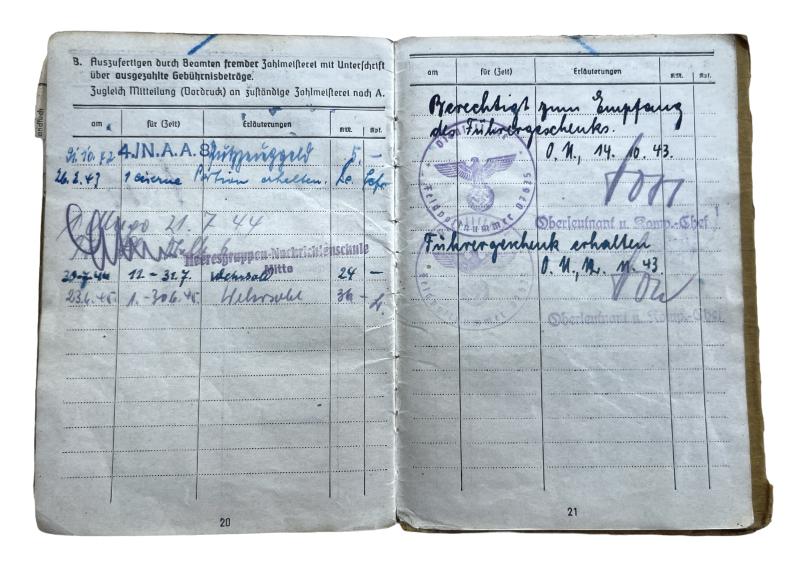 B. Auszufertigen durch Beamten fremder Zahlmeisterei mit Unterschrift
über ausgezahlte Gebührnisbeträge.
Zugleich Mitteilung (Vordruck) an zuständige Zahlmeisterei nach A.
am für (Zeit) Erläuterungen RM. Rpf.
31.10.42 4./N.A.A.8 Putzzeuggeld 5 –
26.2.43 1 eiserne Portion erhalten.
21.7.44
Heeresgruppen-Nachrichtenschule
Mitte
12.–31.7. Wehrsold 24 –
23.6.45. 1.–30.6.45. Wehrsold 36 –
20
am für (Zeit) Erläuterungen RM. Rpf.
Berechtigt zum Empfang
des Führergeschenks.
O.U., 14.10.43.
Feldpostnummer 07635
Oberleutnant u. Komp.-Chef
Führergeschenk erhalten
O.U., 11.43.
Oberleutnant u. Komp.-Chef
21